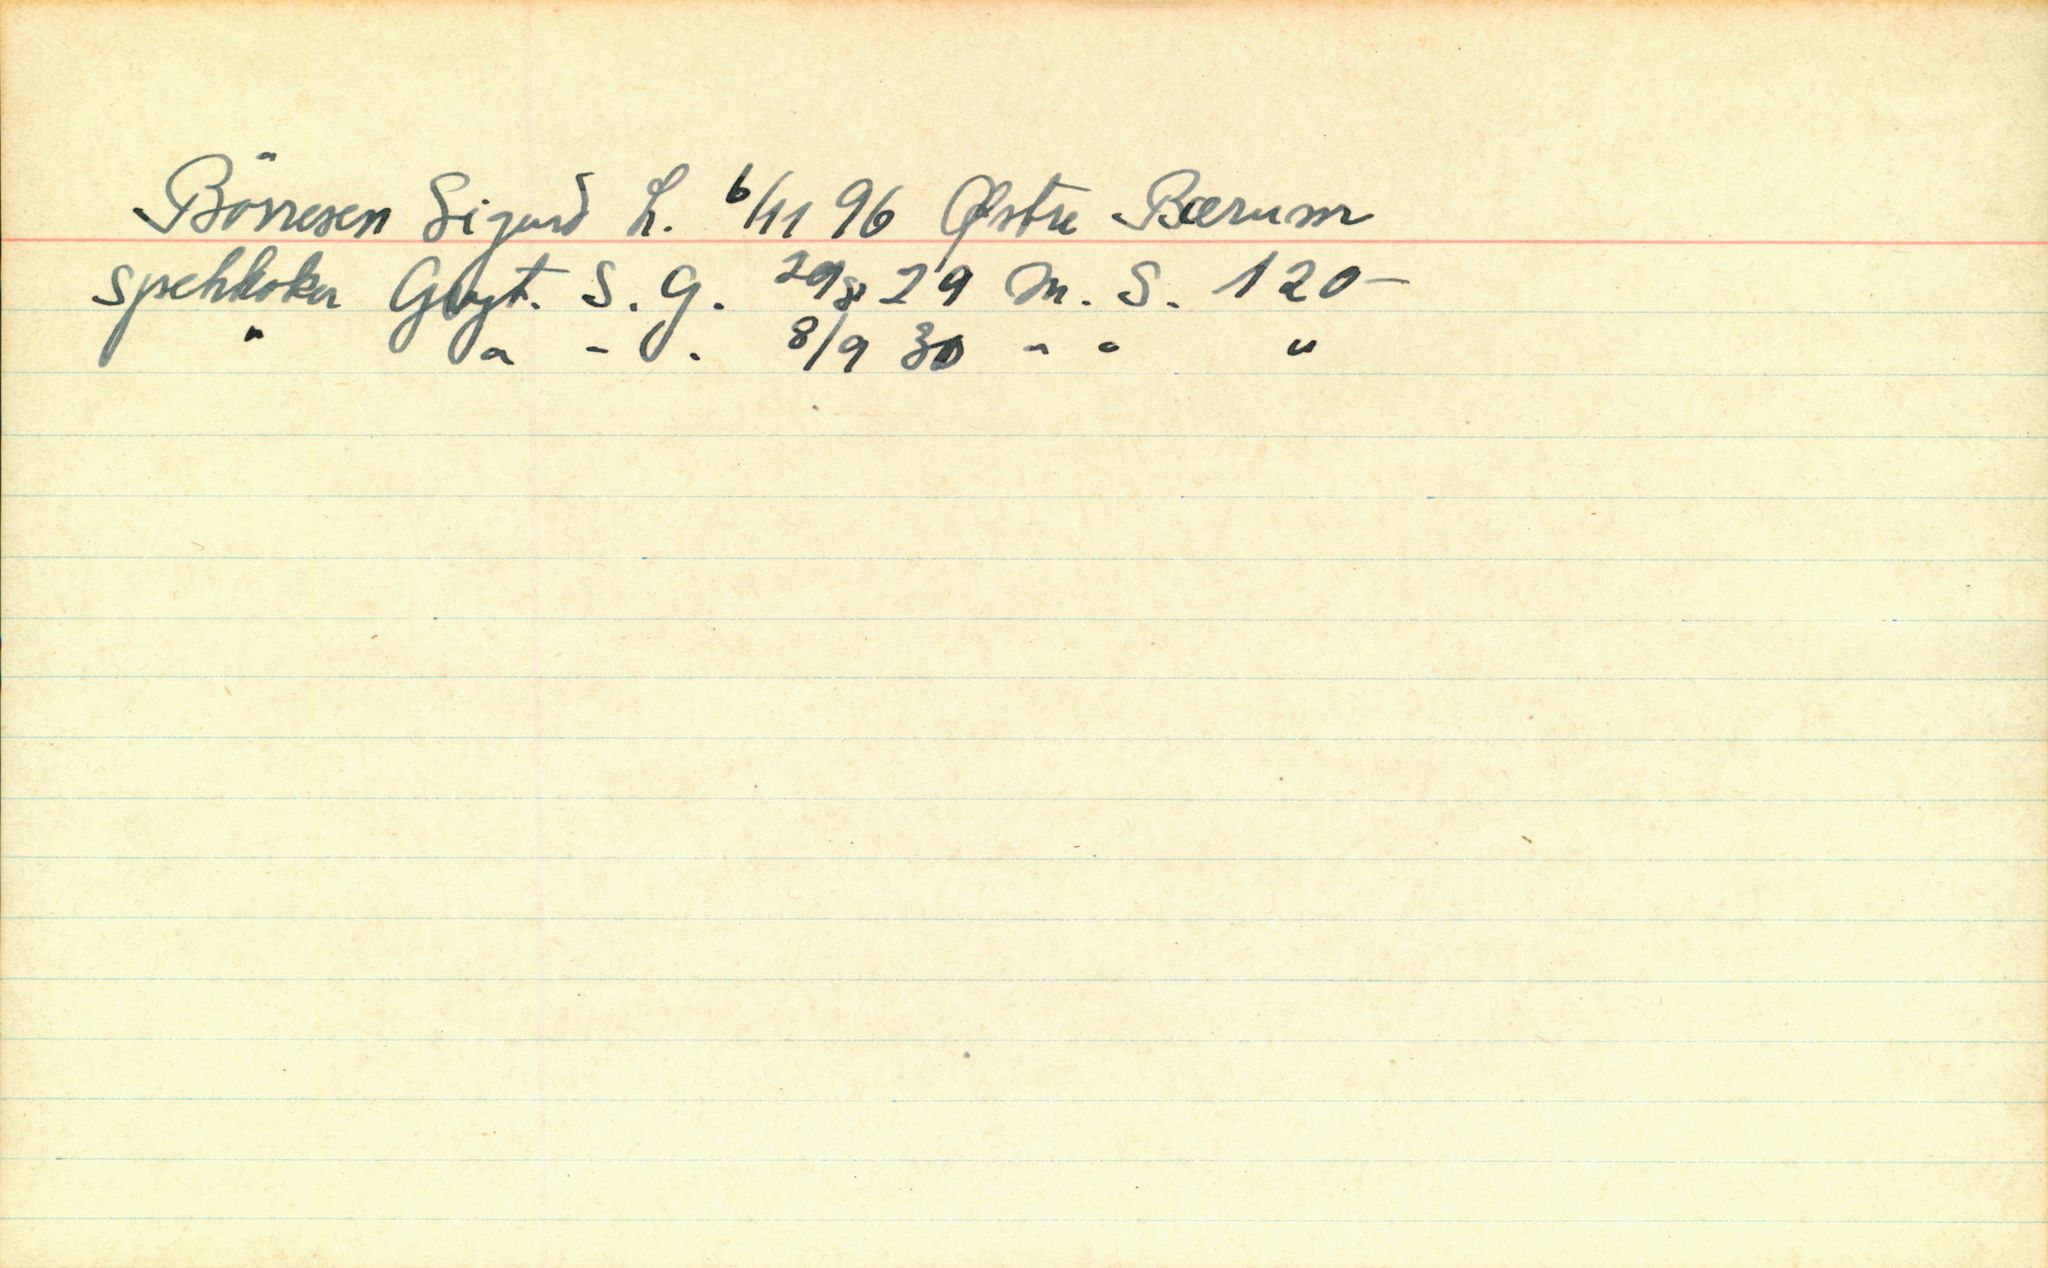 Börresen Sigurd L. 6/11 96 Østre Bærum
Spekkoker Gryt. S. G. 29/8 29 M. S. 120-
" " - . 8/9 30 " " "